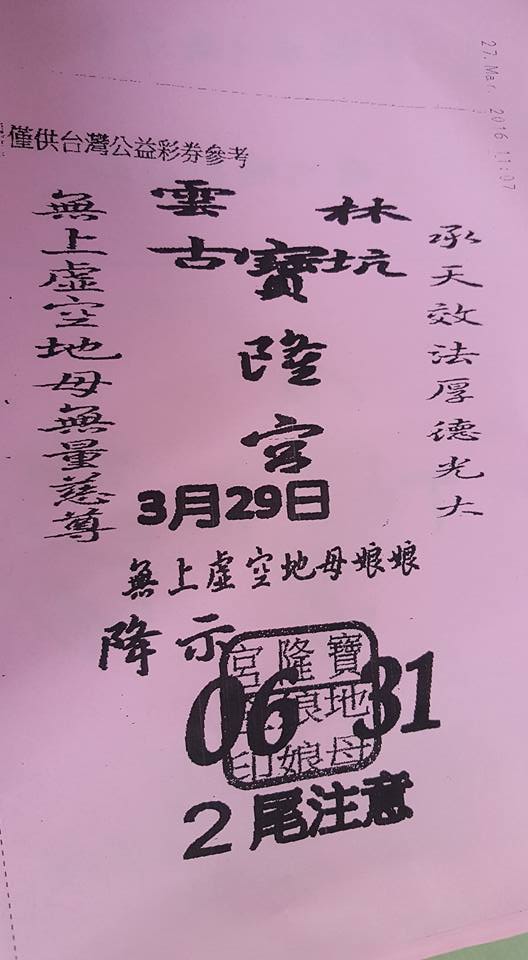 27.Mar. 2016 11:07
僅供台灣公益彩券參考
雲林
古坑
寶隆宮
承天效法厚德光大
無上虛空地母無量慈尊
3月29日
無上虛空地母娘娘
降示
06 31
寶隆宮
地娘
母娘印
2尾注意